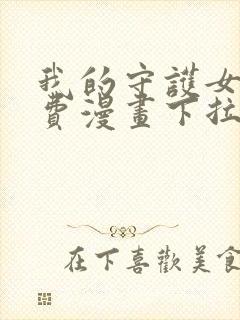 我的守護女
費漫畫下拉
在下喜歡美食